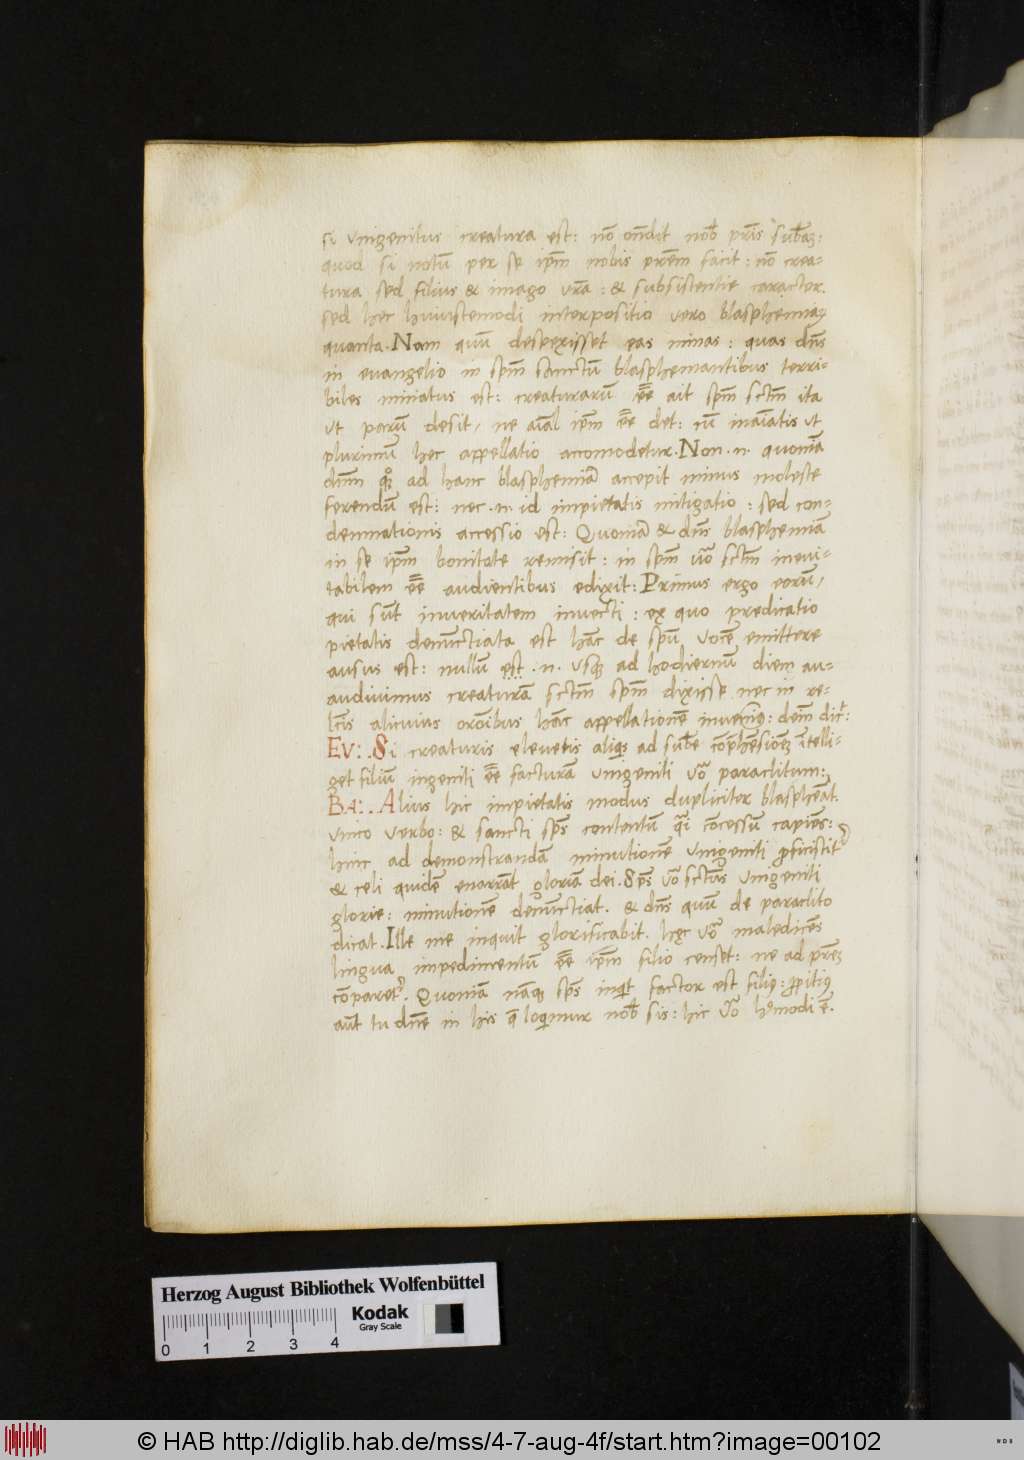 si vnigenitus creatura est: nō oñdit nob̄ pr̄is sub̄aȝ:
quod si notū per se ip̄m nobis pr̄em facit: nō crea-
tura sed filius & imago vr̄a: & subsistentie caracter.
sed hec huiuscemodi interpositio vero blasphemiaȩ
quanta. Nam quū despexisset eas minas: quas dn̄s
in euangelio in sp̄m sanctū blasphemantibus terri-
biles minatus est: creaturarū ēē ait sp̄m sctm̄ ita
vt parū desit, ne aīal ip̄m ēē det: cū inaīatis vt
plurimū hec appellatio accomodetur. Non .n. quoniā
dum̄ ad hanc blasphemiā accepit minus moleste
ferendū est: nec .n. id impietatis mitigatio: sed con-
demnationis accessio est: Quoniā & dn̄s blasphemiā
in se ip̄m bonitate remisit: in sp̄m uō sctm̄ ineui-
tabilem ēē audientibus edixit: Primus ergo eorū,
qui sūt inueritatem inuecti: ex quo predicatio
pietatis denūctiata est hāc de spū vocē emittere
ausus est: nullū est .n. vsqȝ ad hodiernū diem au-
audiuimus creaturā sctm̄ sp̄m dixisse nec in re-
lcīs alicuius orōibus hāc appellationē inuenimꝰ: deīn dic̄:
EV: Si creaturis eleuetis aliqͥs ad sub̄e cōp̄hēsionēȝ ītelli-
get filiū ingeniti ēē facturā vnigeniti vō paraclitum:
BA: Alius hic impietatis modus dupliciter blasphēat.
vnico verbo: & sancti sp̄s contentū qͣi cōcessū capiēs:
hinc ad demonstrandā minutionē vnigeniti ꝓficiscitͬ
& celi quidē enarrāt gloriā dei. Sp̄s uō sctūs vnigeniti
glorie: minutionē denūctiat. & dn̄s quū de paraclito
dicat. Ille me inquit glorificabit. hęc vō maledicēs
lingua impedimentū ēē ip̄m filio censet: ne ad pr̄eȝ
cōparetͬ. Quoniā nāqȝ sp̄s inqͥt factor est filiꝰ: ꝓpitiꝰ
aūt tu dn̄e in his q̄ loqͥmur nob̄ sis: hic vō hꝰmodi ē.
Herzog August Bibliothek Wolfenbüttel
Kodak
Gray Scale
0 1 2 3 4
© HAB http://diglib.hab.de/mss/4-7-aug-4f/start.htm?image=00102